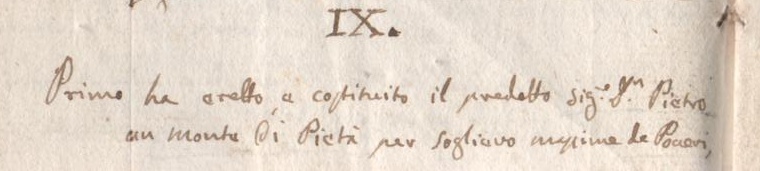 IX.
Primo ha eretto, e costituito il predetto Sig.r D.n Pietro
un monte di Pietà per soglievo massime de Poveri,